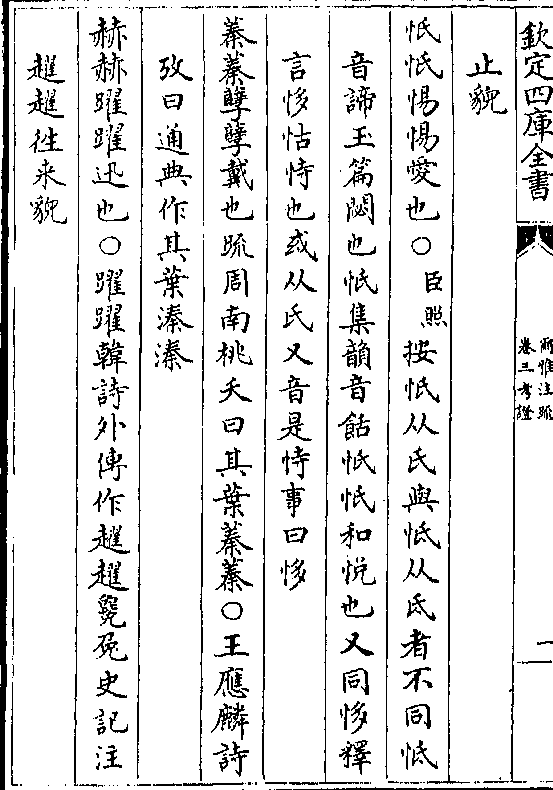 欽定四庫全書
爾雅注疏
卷三考證
一
止貌
怟怟惕惕愛也○臣照按怟从氏與怟从氐者不同怟
音諦玉篇悶也怟集韻音餂怟怟和悅也又同恀釋
言恀怙恃也或从氏又音是恃事曰恀
蓁蓁孽孽戴也疏周南桃夭曰其葉蓁蓁○王應麟詩
攷曰通典作其葉溱溱
赫赫躍躍迅也○躍躍韓詩外傳作趯趯毚兔史記注
趯趯徃来貌